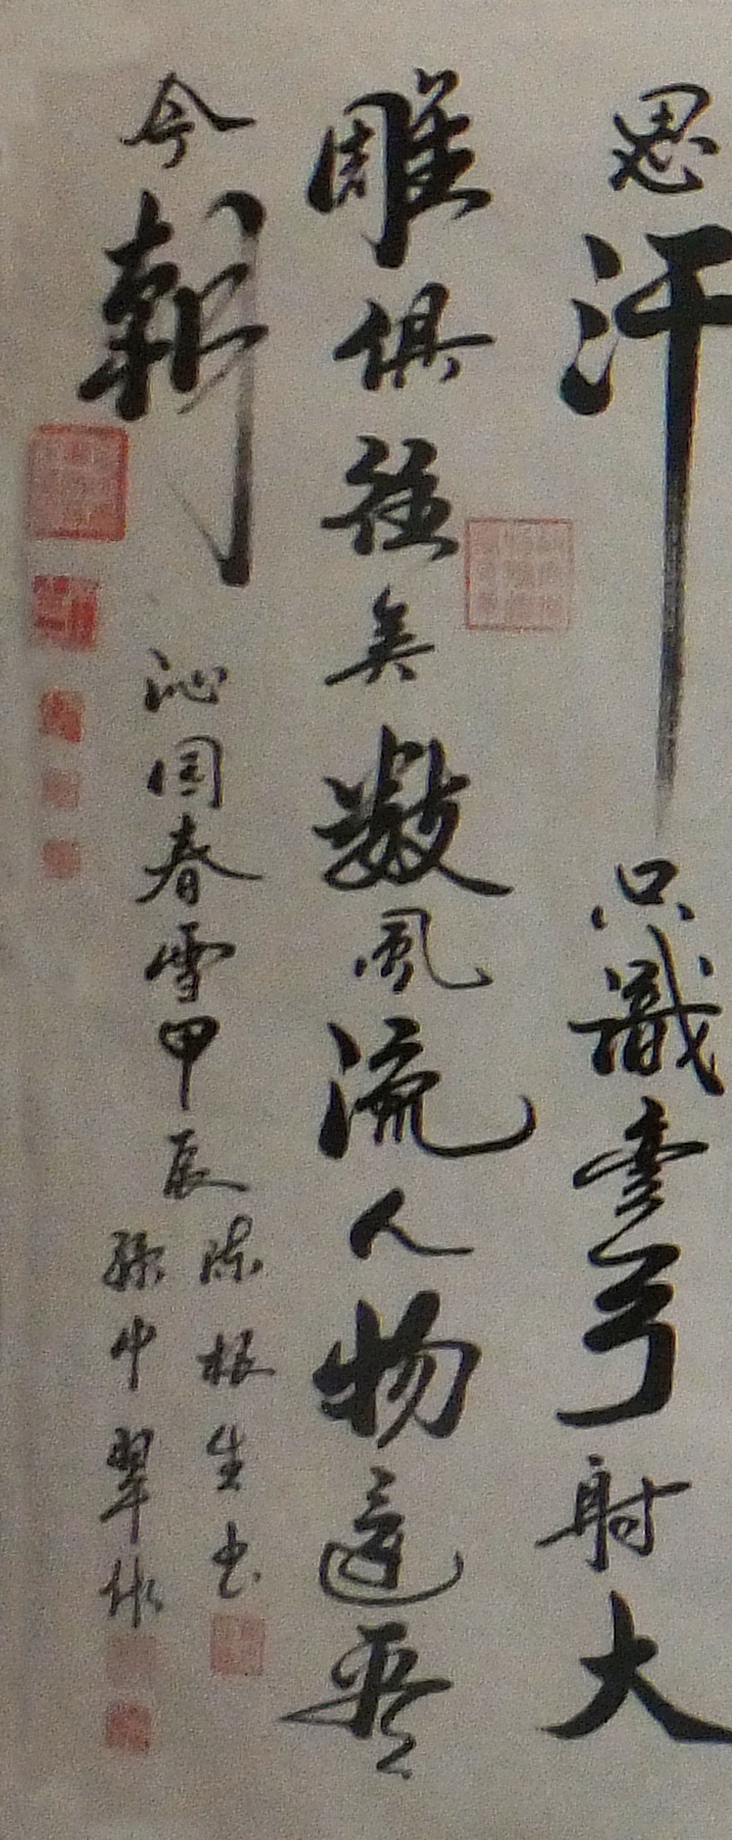 思汗只識彎弓射大
雕俱往矣數風流人物還看
今朝
沁園春雪甲辰
陳根生书
孫中翠作